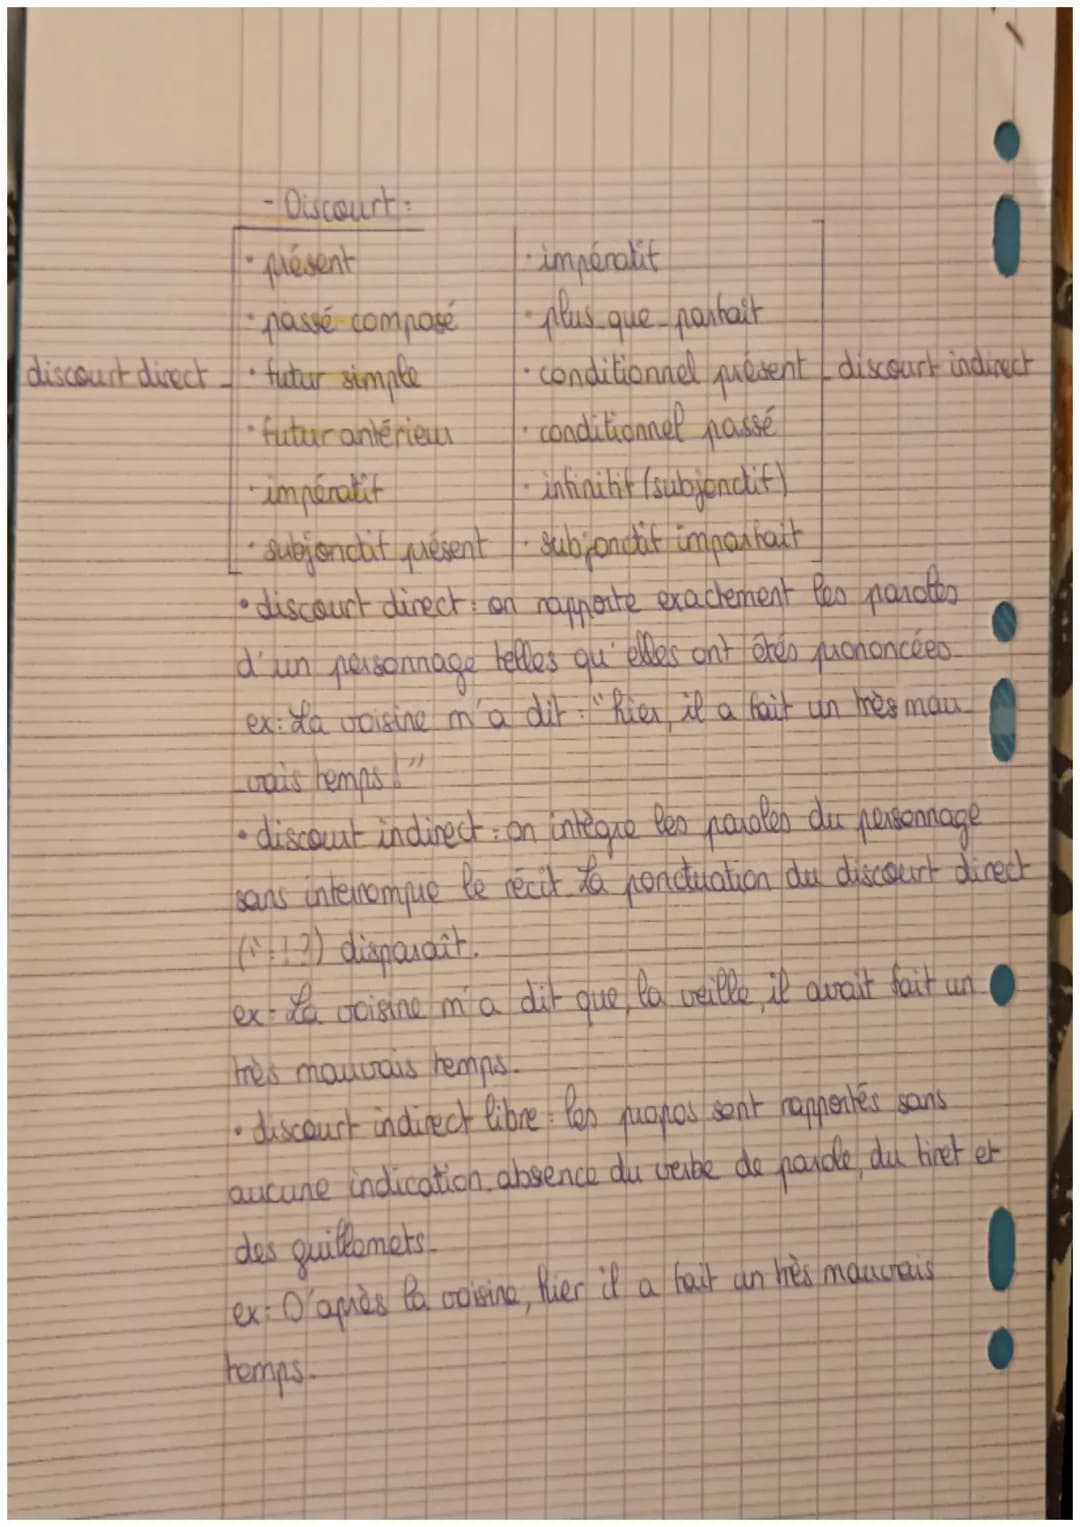 - Discourt :
· présent · impératif
· passé composé · plus-que-parfait
discourt direct · futur simple · conditionnel présent discourt indirect
· futur antérieur · conditionnel passé
· impératif · infinitif (subjonctif)
· subjonctif présent · subjonctif imparfait
• discourt direct : on rapporte exactement les paroles
d'un personnage telles qu'elles ont étés prononcées.
ex : La voisine m'a dit : "hier, il a fait un très mau-
vais temps !"
• discourt indirect : on intègre les paroles du personnage
sans interrompre le récit. La ponctuation du discourt direct
disparaît.
ex : La voisine m'a dit que, la veille, il avait fait un
très mauvais temps.
• discourt indirect libre : les propos sont rapportés sans
aucune indication. absence du verbe de parole, du tiret et
des guillemets.
ex : D'après la voisine, hier il a fait un très mauvais
temps.